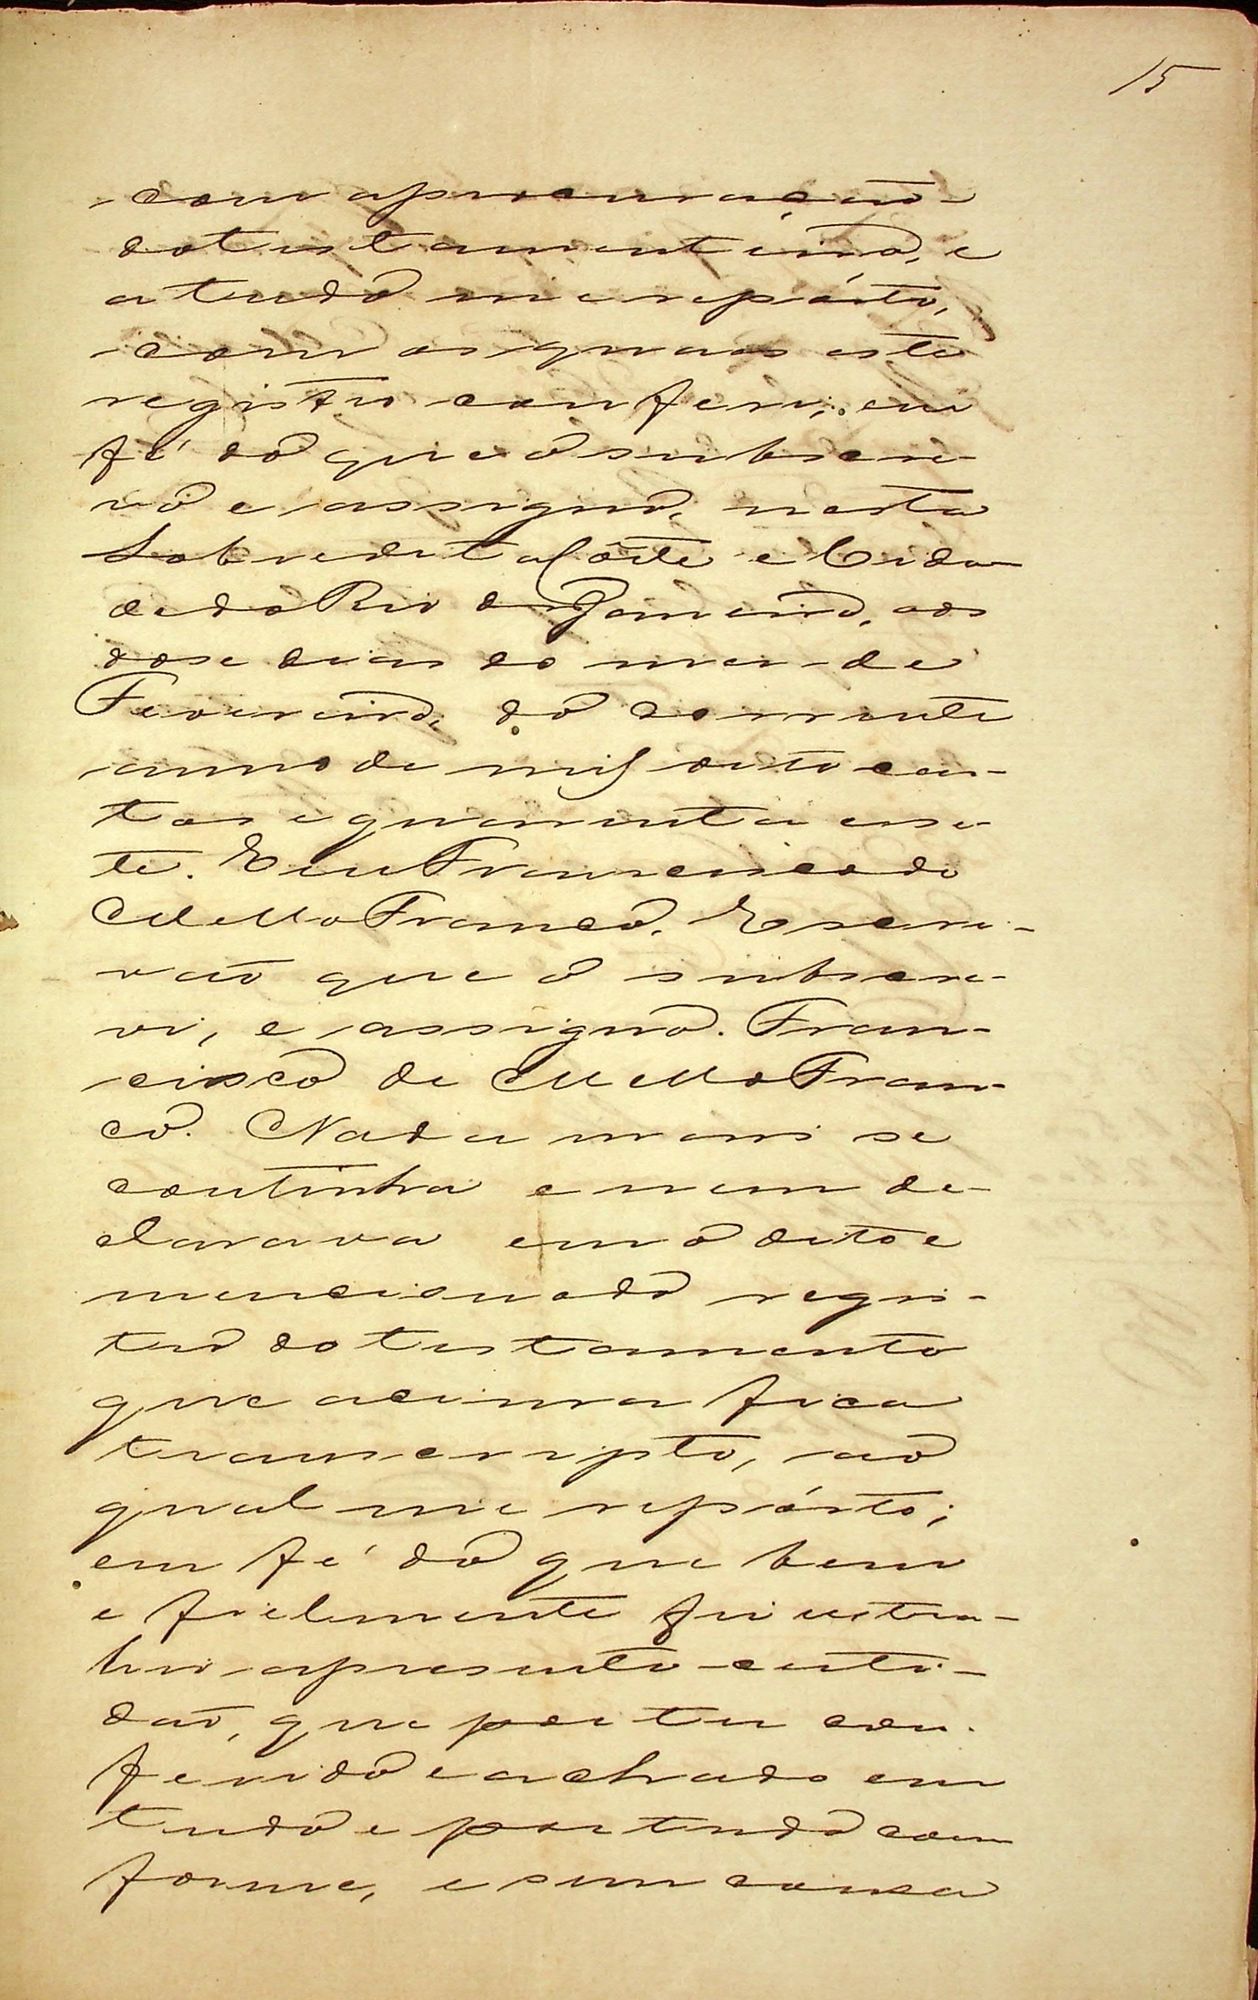 15
com aprocuração
dotestamenteiro, e
a tudo me repórto,
com os quaes este
registro conferi; em
fé do que o subscre-
vo e assigno, nesta
Sobredita Côrte e Cida-
de do Rio de Janeiro, aos
dose dias do mez de
Fevereiro, do corrente
anno de mil oito cen-
tos e quarenta e se-
te. Eeu Francisco de
Mello Franco, Escri-
vaõ que o subscre-
vi, e assigno. Fran-
cisco de Mello Fran-
co. Nada mais se
continha e nem de-
clarava em o dito e
mencionado regis-
tro do testamento
que acima fica
transcripto, ao
qual me repórto;
em fé do que bem
e fielmente fiz extra-
hir apresente certi-
daõ, que por ter con-
ferido e achado em
tudo e por tudo con
forme, e sem cousa